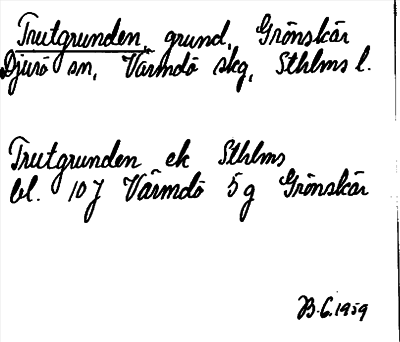 Trutgrunden, grund, Grönskär
Djurö sn, Värmdö skg, Sthlms l.
Trutgrunden ek Sthlms
bl. 10J Värmdö 5g Grönskär
B.C. 1959